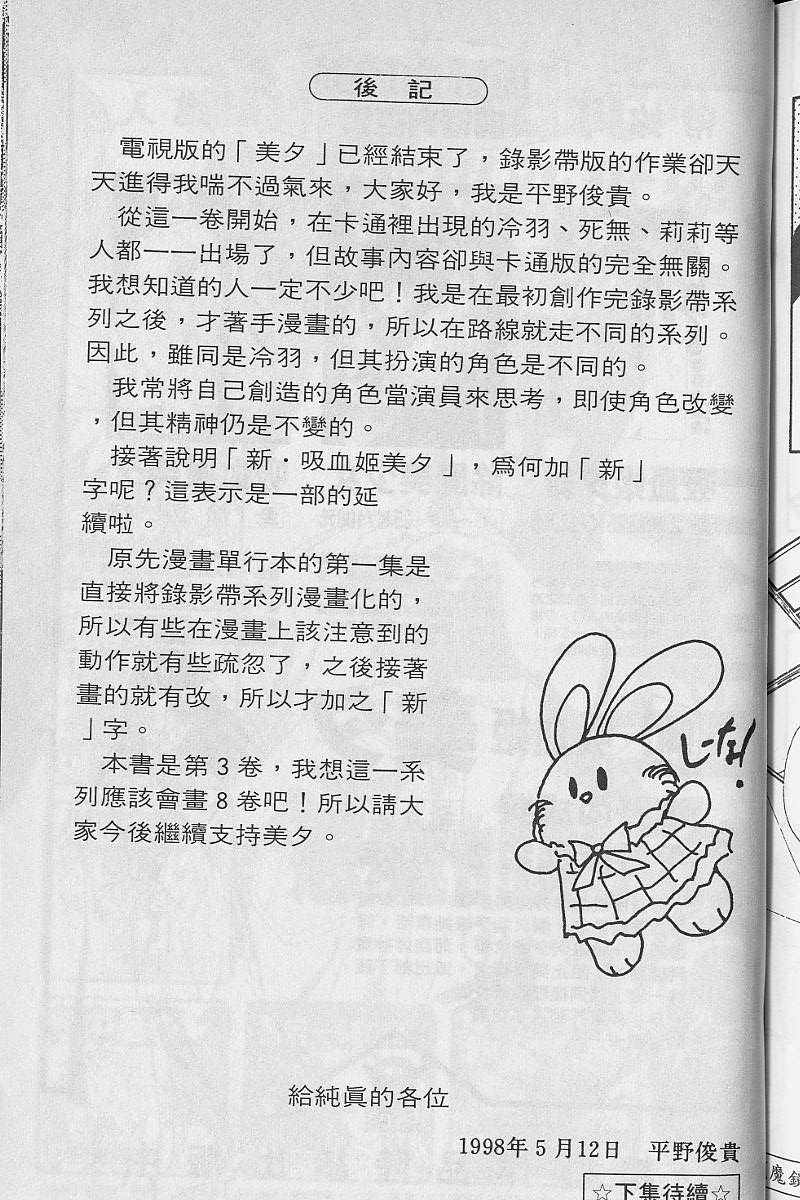 後記
電視版的「美夕」已經結束了，錄影帶版的作業卻天
天進得我喘不過氣來，大家好，我是平野俊貴。
從這一卷開始，在卡通裡出現的冷羽、死無、莉莉等
人都一一出場了，但故事內容卻與卡通版的完全無關。
我想知道的人一定不少吧！我是在最初創作完錄影帶系
列之後，才著手漫畫的，所以在路線就走不同的系列。
因此，雖同是冷羽，但其扮演的角色是不同的。
我常將自己創造的角色當演員來思考，即使角色改變
，但其精神仍是不變的。
接著說明「新・吸血姬美夕」，爲何加「新」
字呢？這表示是一部的延
續啦。
原先漫畫單行本的第一集是
直接將錄影帶系列漫畫化的，
所以有些在漫畫上該注意到的
動作就有些疏忽了，之後接著
畫的就有改，所以才加之「新
」字。
本書是第3卷，我想這一系
列應該會畫8卷吧！所以請大
家今後繼續支持美夕。
しーなぁ!
給純眞的各位
1998年5月12日 平野俊貴
☆下集待續☆
魔鏡